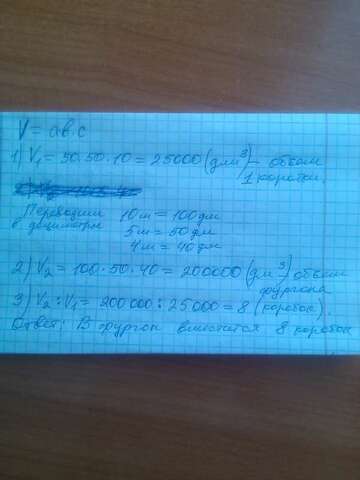 V = a.в.с
1) V₁ = 50·50·10 = 25000 (дм³) – объём
1 коробки.
Переводим 10м = 100дм
в дециметры 5м = 50дм
4м = 40дм
2) V₂ = 100·50·40 = 200000 (дм³) объём
фургона
3) V₂ : V₁ = 200 000 : 25 000 = 8 (коробок).
Ответ: В фургон вместится 8 коробок